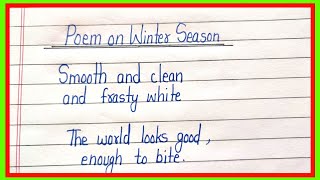 Poem on Winter Season
Smooth and clean
and frasty white
The world looks good,
enough to bite.